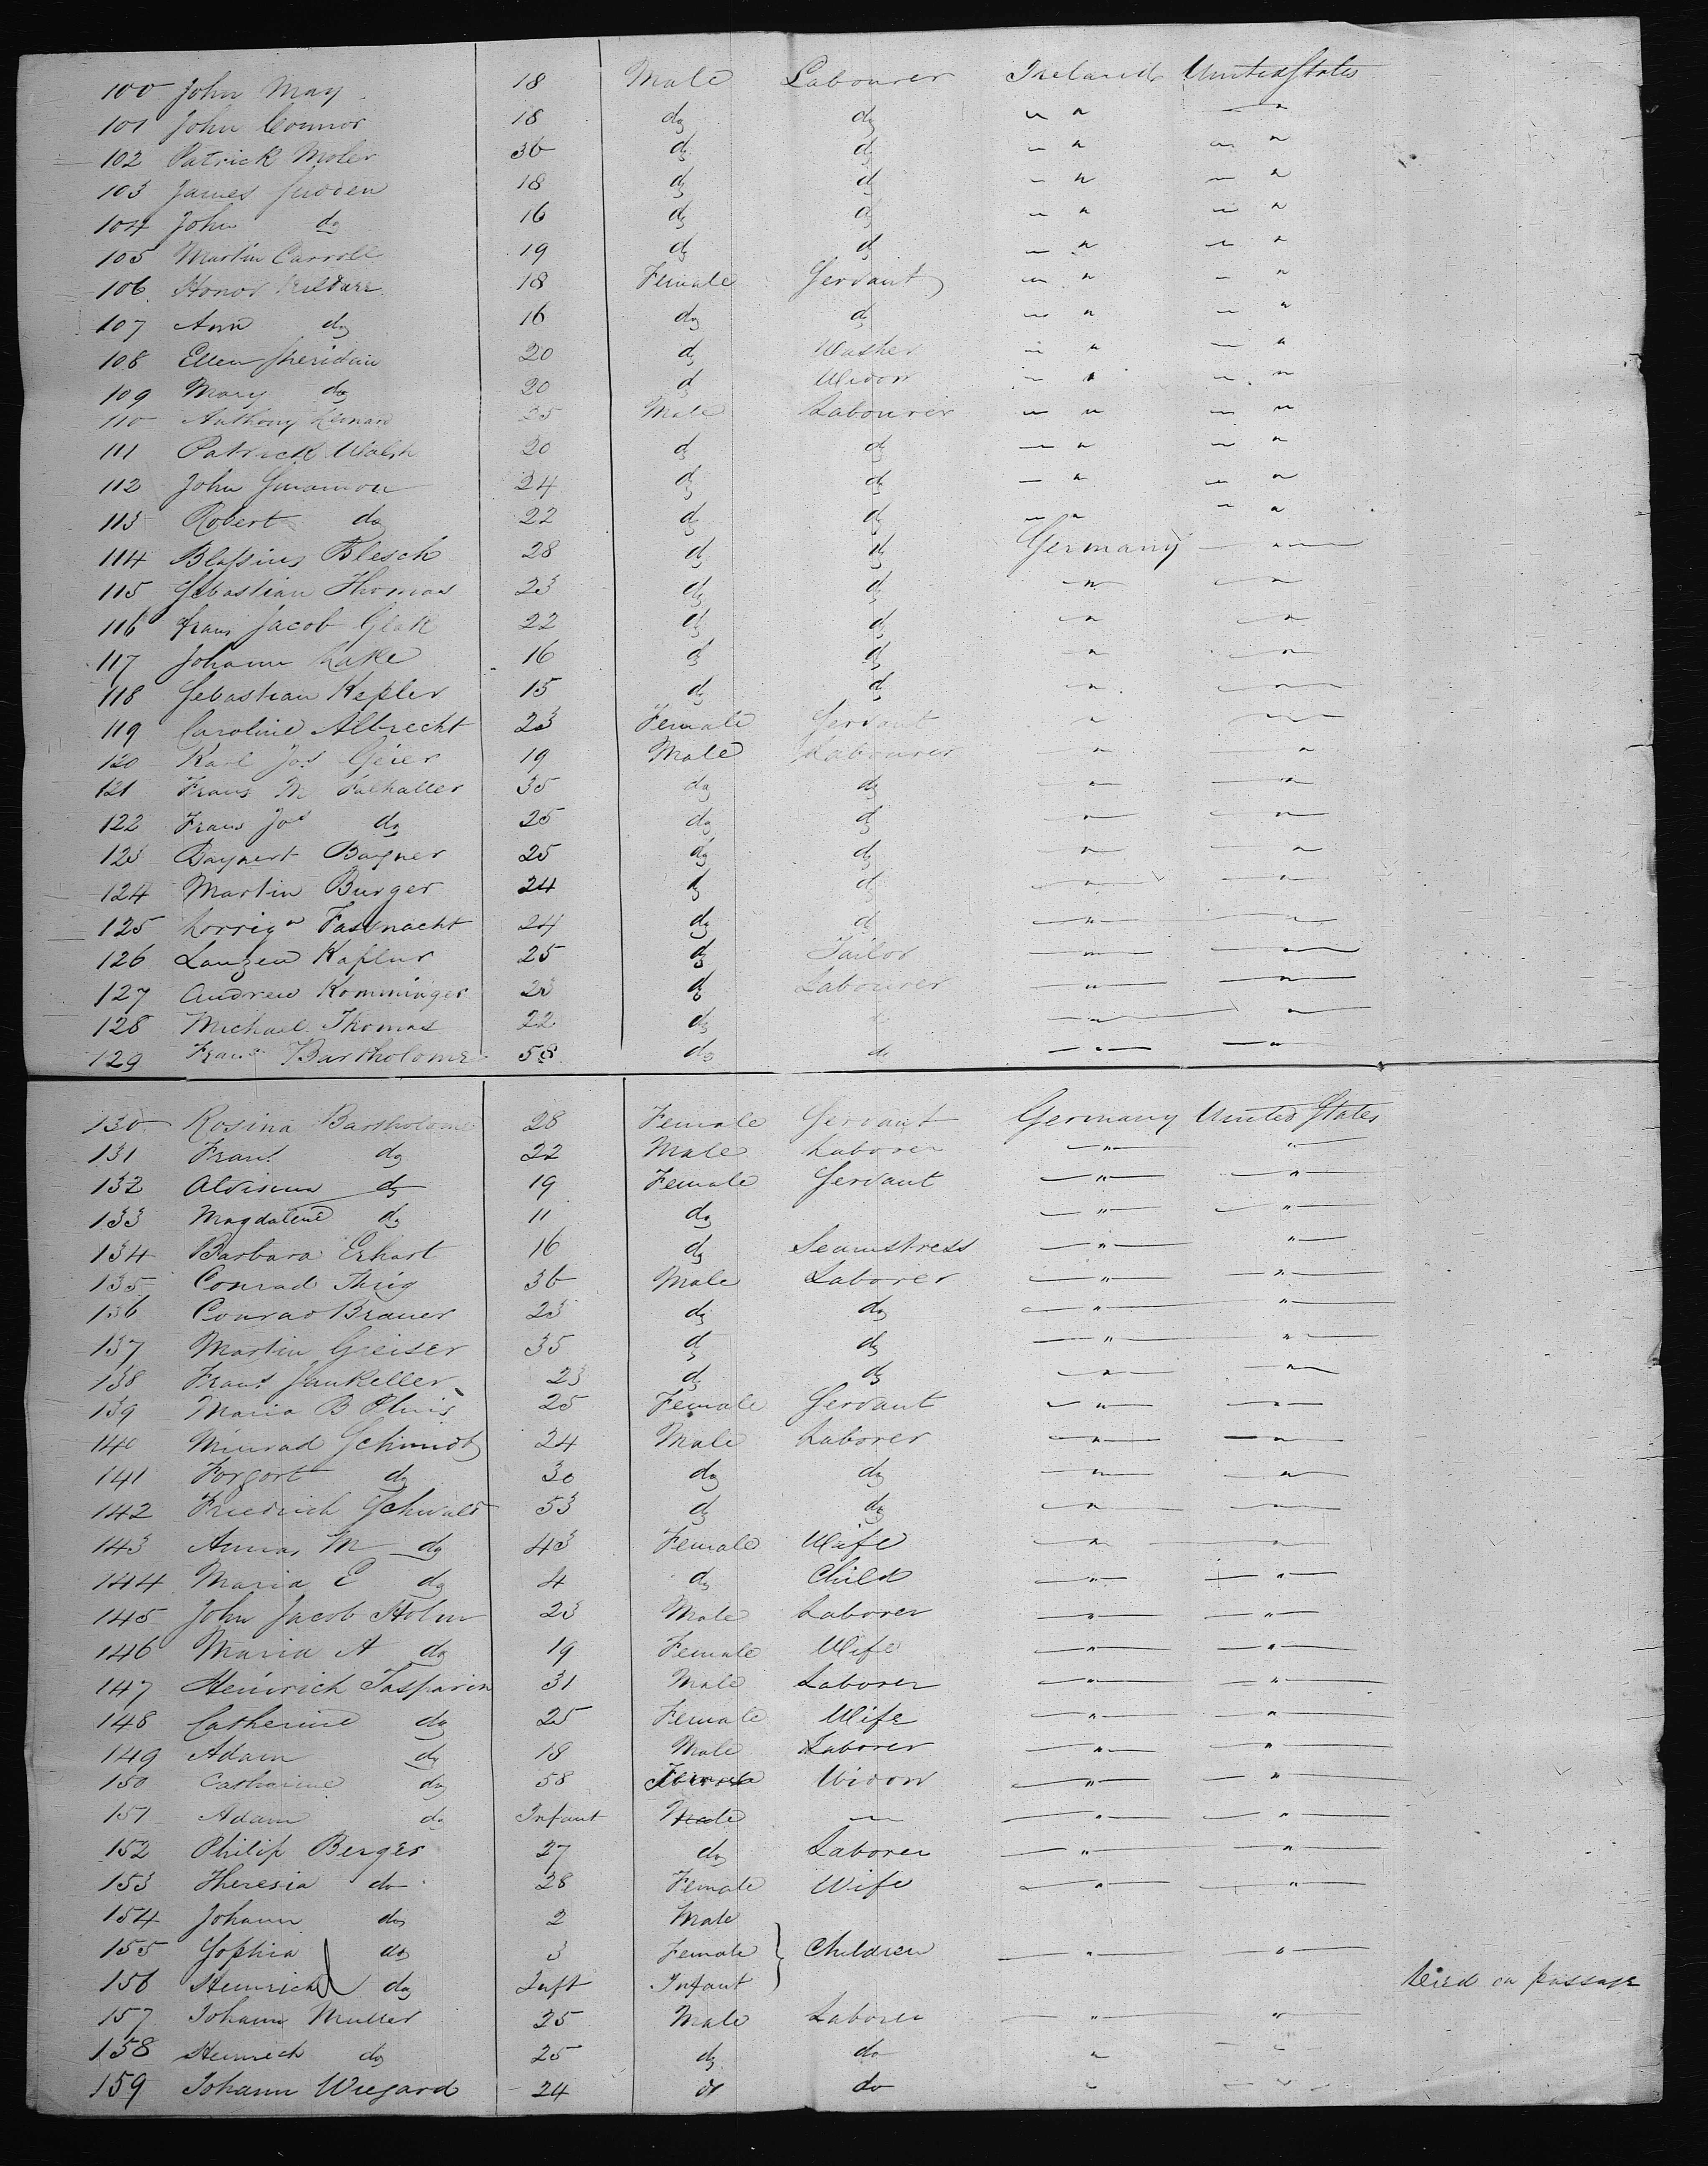 100 John May 18 Male Labourer Ireland United States
101 John Connor 18 do do " " "
102 Patrick Moler 36 do do " " "
103 James 18 do do " " "
104 John do 16 do do " " "
105 Martin Carroll 19 do do " " "
106 Honor 18 Female Servant " " "
107 Ann do 16 do do " " "
108 Ellen Sheridan 20 do Washer " " "
109 Mary do 20 do Widow " " "
110 Anthony 25 Male Labourer " " "
111 Patrick Walsh 20 do do " " "
112 John 24 do do " " "
113 Robert do 22 do do " " "
114 Blassius Blesch 28 do do Germany "
115 Sebastian Thomas 23 do do " "
116 Frans Jacob 22 do do " "
117 Johann Lake 16 do do " "
118 Sebastian Kepler 15 do do " "
119 Caroline Albrecht 23 Female Servant " "
120 Karl Jos Geier 19 Male Labourer " "
121 Frans M Falhaller 35 do do " "
122 Frans Jos do 25 do do " "
123 Bagner 25 do do " "
124 Martin Burger 24 do do " "
125 Fassnacht 24 do do " "
126 25 do Tailor " "
127 Andrew Komminger 23 do Labourer " "
128 Michael Thomas 22 do do " "
129 Frans Bartholome 58 do do " "
130 Rosina Bartholome 28 Female Servant Germany United States
131 Frans do 22 Male Laborer " "
132 do 19 Female Servant " "
133 Magdalene do 11 do " "
134 Barbara Erhart 16 do Seamstress " "
135 Conrad 36 Male Laborer " "
136 Conrad Brauer 23 do do " "
137 Martin Greiser 35 do do " "
138 Frans Jankeller 23 do do " "
139 Maria B 25 Female Servant " "
140 Minrad Schmidt 24 Male Laborer " "
141 do 30 do do " "
142 Friedrich Schwald 53 do do " "
143 Anna M do 43 Female Wife " "
144 Maria E do 4 do Child " "
145 John Jacob Holm 23 Male Laborer " "
146 Maria A do 19 Female Wife " "
147 Heinrich Jasparin 31 Male Laborer " "
148 Catherine do 25 Female Wife " "
149 Adam do 18 Male Laborer " "
150 Catharine do 58 Female Widow " "
151 Adam do Infant Male — " "
152 Philip Berger 27 do Laborer " "
153 Theresia do 28 Female Wife " "
154 Johann do 2 Male
155 Sophia do 3 Female Children " "
156 Heinrich do Inft Infant Died on passage
157 Johann Muller 25 Male Laborer " "
158 Heinrech do 25 do do " "
159 Johann Wiegard 24 do do " "